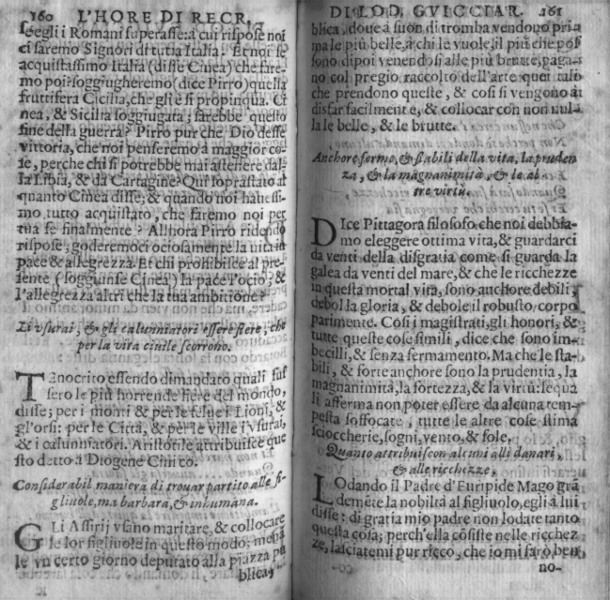 160 L'HORE DI RECR.
se egli i Romani superasse: a cui rispose noi
ci faremo Signori di tutta Italia. Et noi se
acquistassimo Italia (disse Cinea) che fare-
mo poi? soggiugheremo (dice Pirro) quella
fruttifera Cicilia, che gli è si propinqua. Ci
nea, & Sicilia soggiugata; sarebbe questo
fine della guerra? Pirro pur che Dio desse
vittoria, che noi penseremo a maggior co-
se, perche chi si potrebbe mai astenere dal-
la Libia, & da Cartagine? Qui soprastato al
quanto Cinea disse; & quando noi hauessi-
mo tutto acquistato, che faremo noi per
tua fe finalmente? Allhora Pirro ridendo
rispose; goderemoci ociosamente la vita in
pace & allegrezza. Et chi prohibisce al pre-
sente (soggiunse Cinea) la pace l'ocio, &
l'allegrezza altri che la tua ambitione?
Li vsurai, & gli calunniatori essere fiere, che
per la vita ciuile scorrono.
Tenocrito essendo dimandato quali fus
sero le piu horrende fiere del mondo,
disse; per i monti & per le selue i Lioni, &
gl'orsi: per le Città, & per le ville i vsurai,
& i calunniatori. Aristotile attribuisce que
sto detto a Diogene Cinico.
Considerabil maniera di trouar partito alle fi-
gliuole, ma barbara, & inhumana.
GLi Assirij vsano maritare, & collocare
le lor figliuole in questo modo: mena
le vn certo giorno deputato alla piazza pu
blica,
DI LOD. GVICCIAR. 161
blica, doue a suon di tromba vendono pri-
ma le più belle, a chi le vuole, il più che pos
sono dipoi venendo si alle più brutte, paga-
no col pregio raccolto dell'arte quei tali
che prendono queste, & cosi si vengono a
disfar facilmente, & collocar con non nul-
la le belle, & le brutte.
Anchore fermo, & stabili della vita, la pruden
za, & la magnanimità, & le al-
tre virtù.
DIce Pittagora filosofo che noi debbia-
mo eleggere ottima vita, & guardarci
da venti della disgratia come si guarda la
galea da venti del mare, & che le ricchezze
in questa mortal vita, sono anchore debili
debol la gloria, & debole il robusto corpo
parimente. Cosi i magistrati, gli honori, &
tutte queste cose simili, dice che sono im-
becilli, & senza fermamento. Ma che le sta-
bili, & forte anchore sono la prudentia, la
magnanimità, la fortezza, & la virtù: le qua
li afferma non poter essere da alcuna tem-
pesta soffocate, tutte le altre cose stima
scioccherie, sogni, vento, & fole.
Quanto attribuiscon alcuni alli danari,
& alle ricchezze,
LOdando il Padre d'Euripide Mago grã
demẽte la nobiltà al figliuolo, egli a lui
disse: di gratia mio padre non lodate tanto
questa cosa; perch'ella cõsiste nelle ricchez
ze, lasciatemi pur ricco, che io mi farò ben
no-